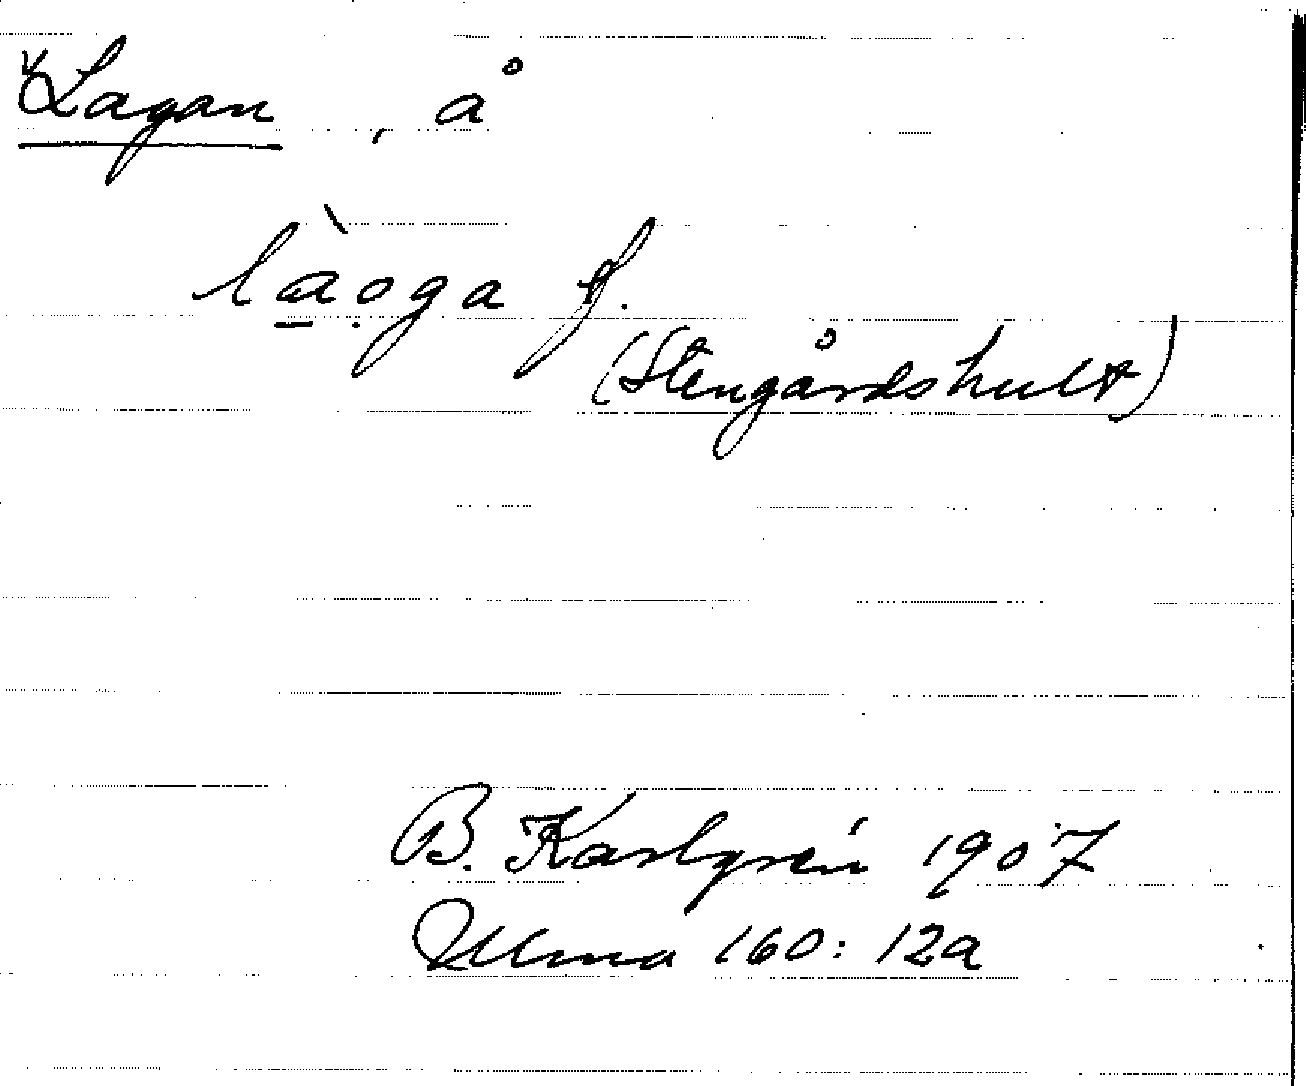 Lagan, å
làoga f.
(Stengårdshult)
B. Karlgrén 1907
Ulma 160: 12a